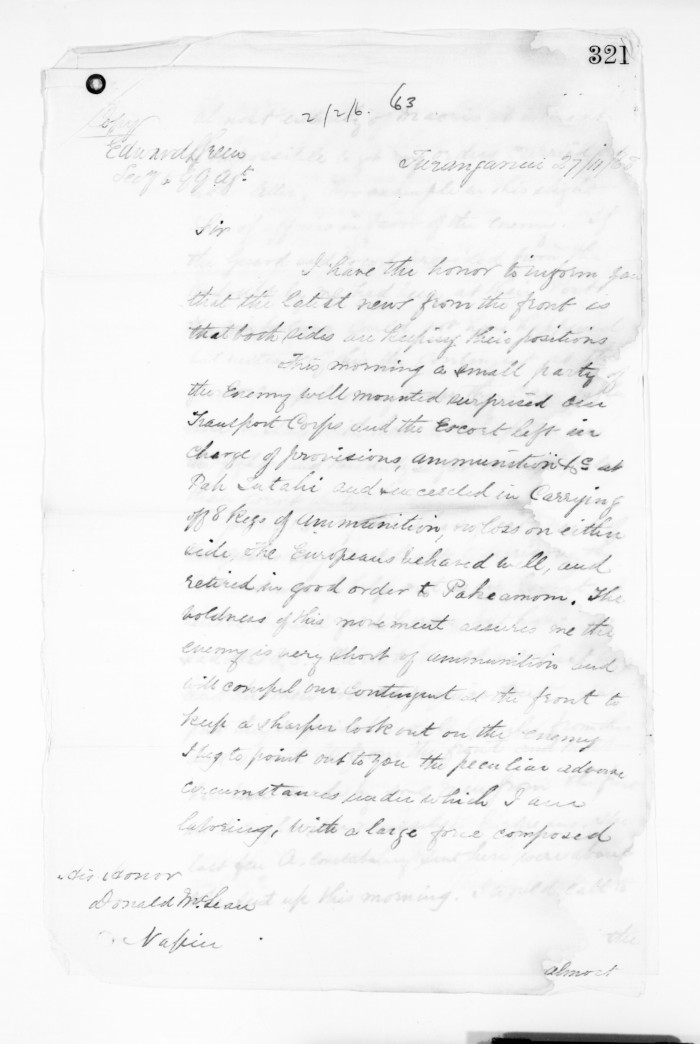 321
2/2/6. /63
Copy
Turanganui 27/11/68
Sir
I have the honor to inform you
that the latest news from the front is
that both sides are keeping their positions
This morning a small party of
the Enemy well mounted surprised our
Transport Corps and the Escort left in
charge of provisions, ammunition &c at
Pah Tutahi and succeeded in Carrying
off 8 Kegs of ammunition, no loss on either
side, the Europeans behaved well, and
retired in good order to Pakeamom. The
boldness of this movement assures me the
enemy is very short of ammunition and
will compel our contingent at the front to
keep a sharper look out on the enemy
I beg to point out to you the peculiar adverse
circumstances under which I am
laboring, with a large force composed
His Honor
Donald McLean
Napier
almost